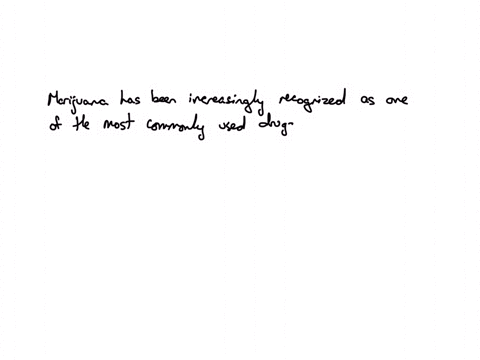 Marijuana has been increasingly recognized as one
of the most commonly used drug.